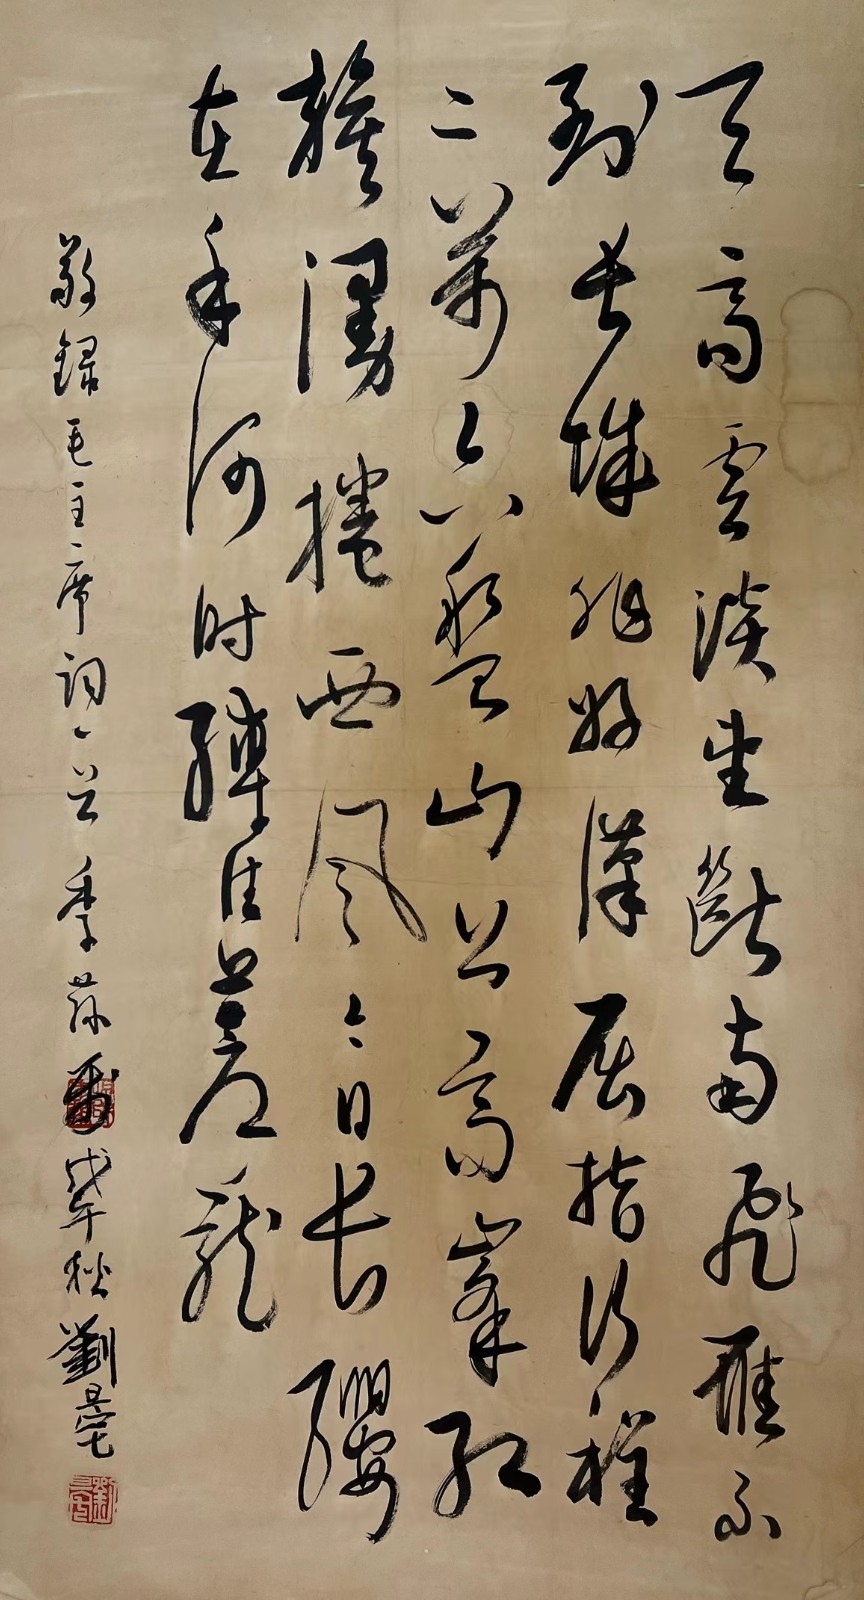 天高雲淡望斷南飛雁不
到長城非好漢屈指行程
二萬六盤山上高峯紅
旗漫捲西風今日長纓
在手何时縛住蒼龍
敬錄毛主席詞一首 季 戊午秋 劉